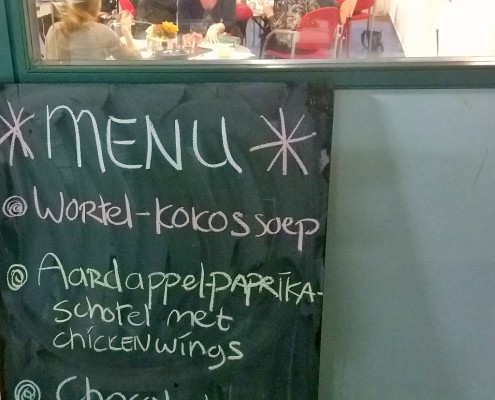 * MENU *
@ Wortel-Kokossoep
@ Aardappelpaprika-
schotel met
chickenwings